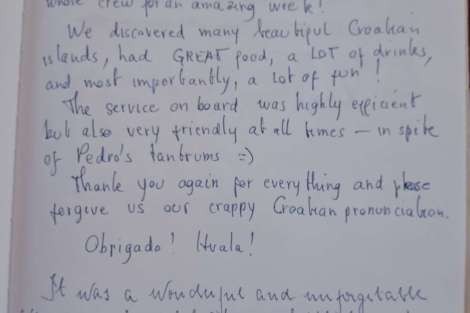 whole crew for an amazing week!
We discovered many beautiful Croatian
islands, had GREAT food, a LOT of drinks,
and most importantly, a lot of fun!
The service on board was highly efficient
but also very friendly at all times – in spite
of Pedro's tantrums =)
Thank you again for everything and please
forgive us our crappy Croatian pronunciation.
Obrigado! Hvala!
It was a wonderful and unforgetable